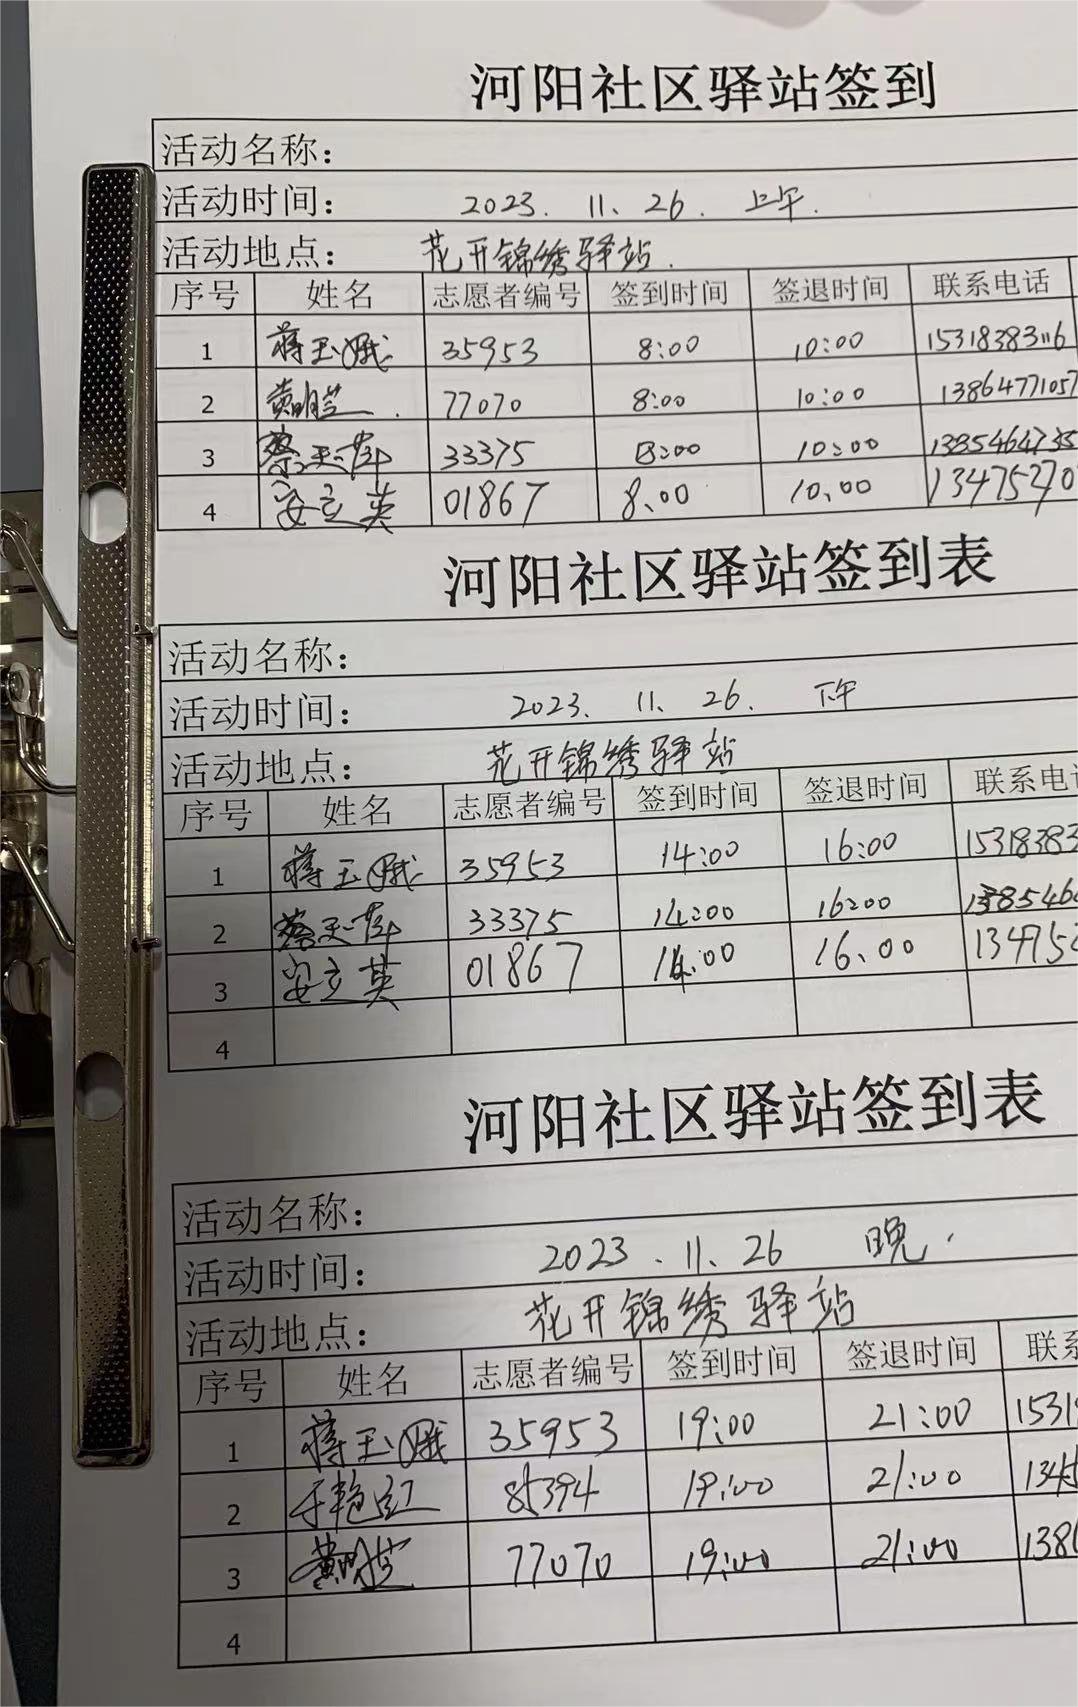 河阳社区驿站签到
活动名称：
活动时间： 2023. 11、26. 上午.
活动地点： 花开锦绣驿站.
序号 姓名 志愿者编号 签到时间 签退时间 联系电话
1 蒋玉娥 35953 8:00 10:00 15318383116
2 黄明兰 77070 8:00 10:00 13864771057
3 蔡天萍 33375 8:00 10:00 1385464735
4 安立英 01867 8、00 10、00 13475270
河阳社区驿站签到表
活动名称：
活动时间： 2023、 11、26. 下午
活动地点： 花开锦绣驿站
序号 姓名 志愿者编号 签到时间 签退时间 联系电
1 蒋玉娥 35953 14:00 16:00 15318383
2 蔡天萍 33375 14:00 16:00 1385460
3 安立英 01867 14:00 16、00 134752
4
河阳社区驿站签到表
活动名称：
活动时间： 2023 . 11、26 晚.
活动地点： 花开锦绣驿站
序号 姓名 志愿者编号 签到时间 签退时间 联系
1 蒋玉娥 35953 19:00 21:00 1531
2 于艳红 85394 19:00 21:00 1345
3 黄明兰 77070 19:00 21:00 138
4